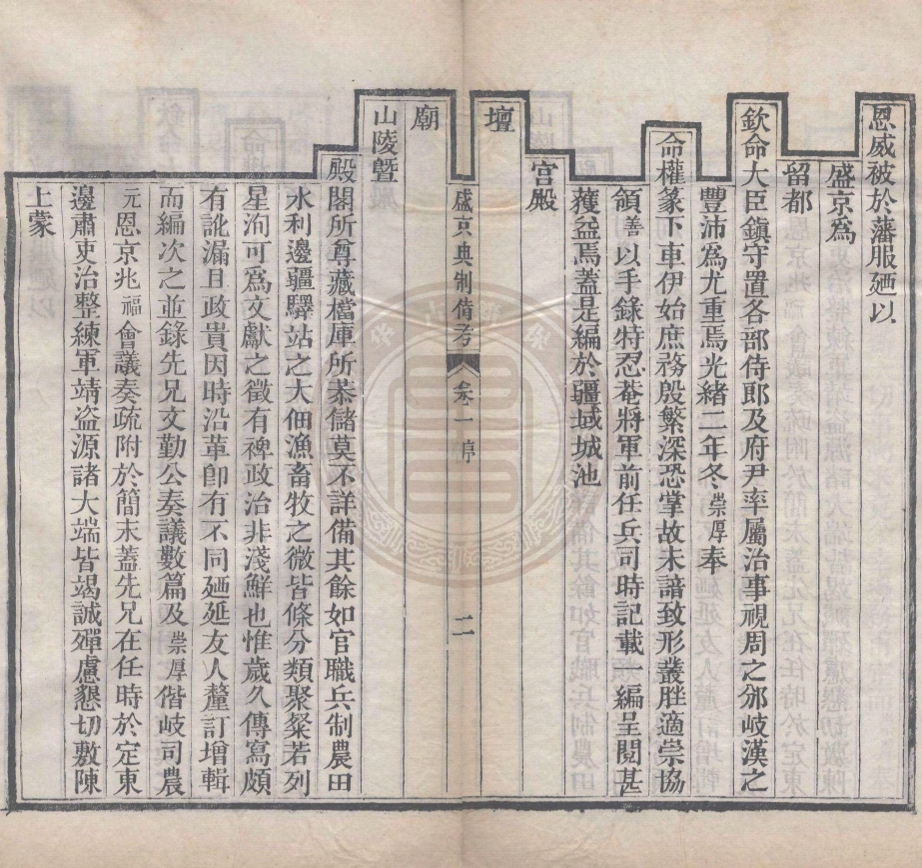 恩威被於藩服廼以
盛京爲
留都
欽命大臣鎮守置各部侍郎及府尹率屬治事視周之邠岐漢之
豐沛爲尤重焉光緒二年冬崇厚奉
命權篆下車伊始庶務殷繁深恐掌故未諳致形叢脞適崇協
領善以手錄特忍菴將軍前任兵司時記載一編呈閱甚
獲益焉蓋是編於疆域城池
宮殿
壇
盛京典制備考 卷一 序 二
廟
山陵暨
殿閣所尊藏檔庫所恭儲莫不詳備其餘如官職兵制農田
水利邊疆驛站之大佃漁畜牧之微皆條分類聚粲若列
星洵可爲文獻之徵有裨政治非淺鮮也惟歲久傳寫頗
有訛漏且政貴因時沿革卽有不同廼延友人釐訂增輯
而編次之並錄先兄文勤公奏議數篇及崇厚偕岐司農
元恩京兆福會議奏疏附於簡末蓋先兄在任時於定東
邊肅吏治整練軍靖盜源諸大端皆竭誠殫慮懇切敷陳
上蒙